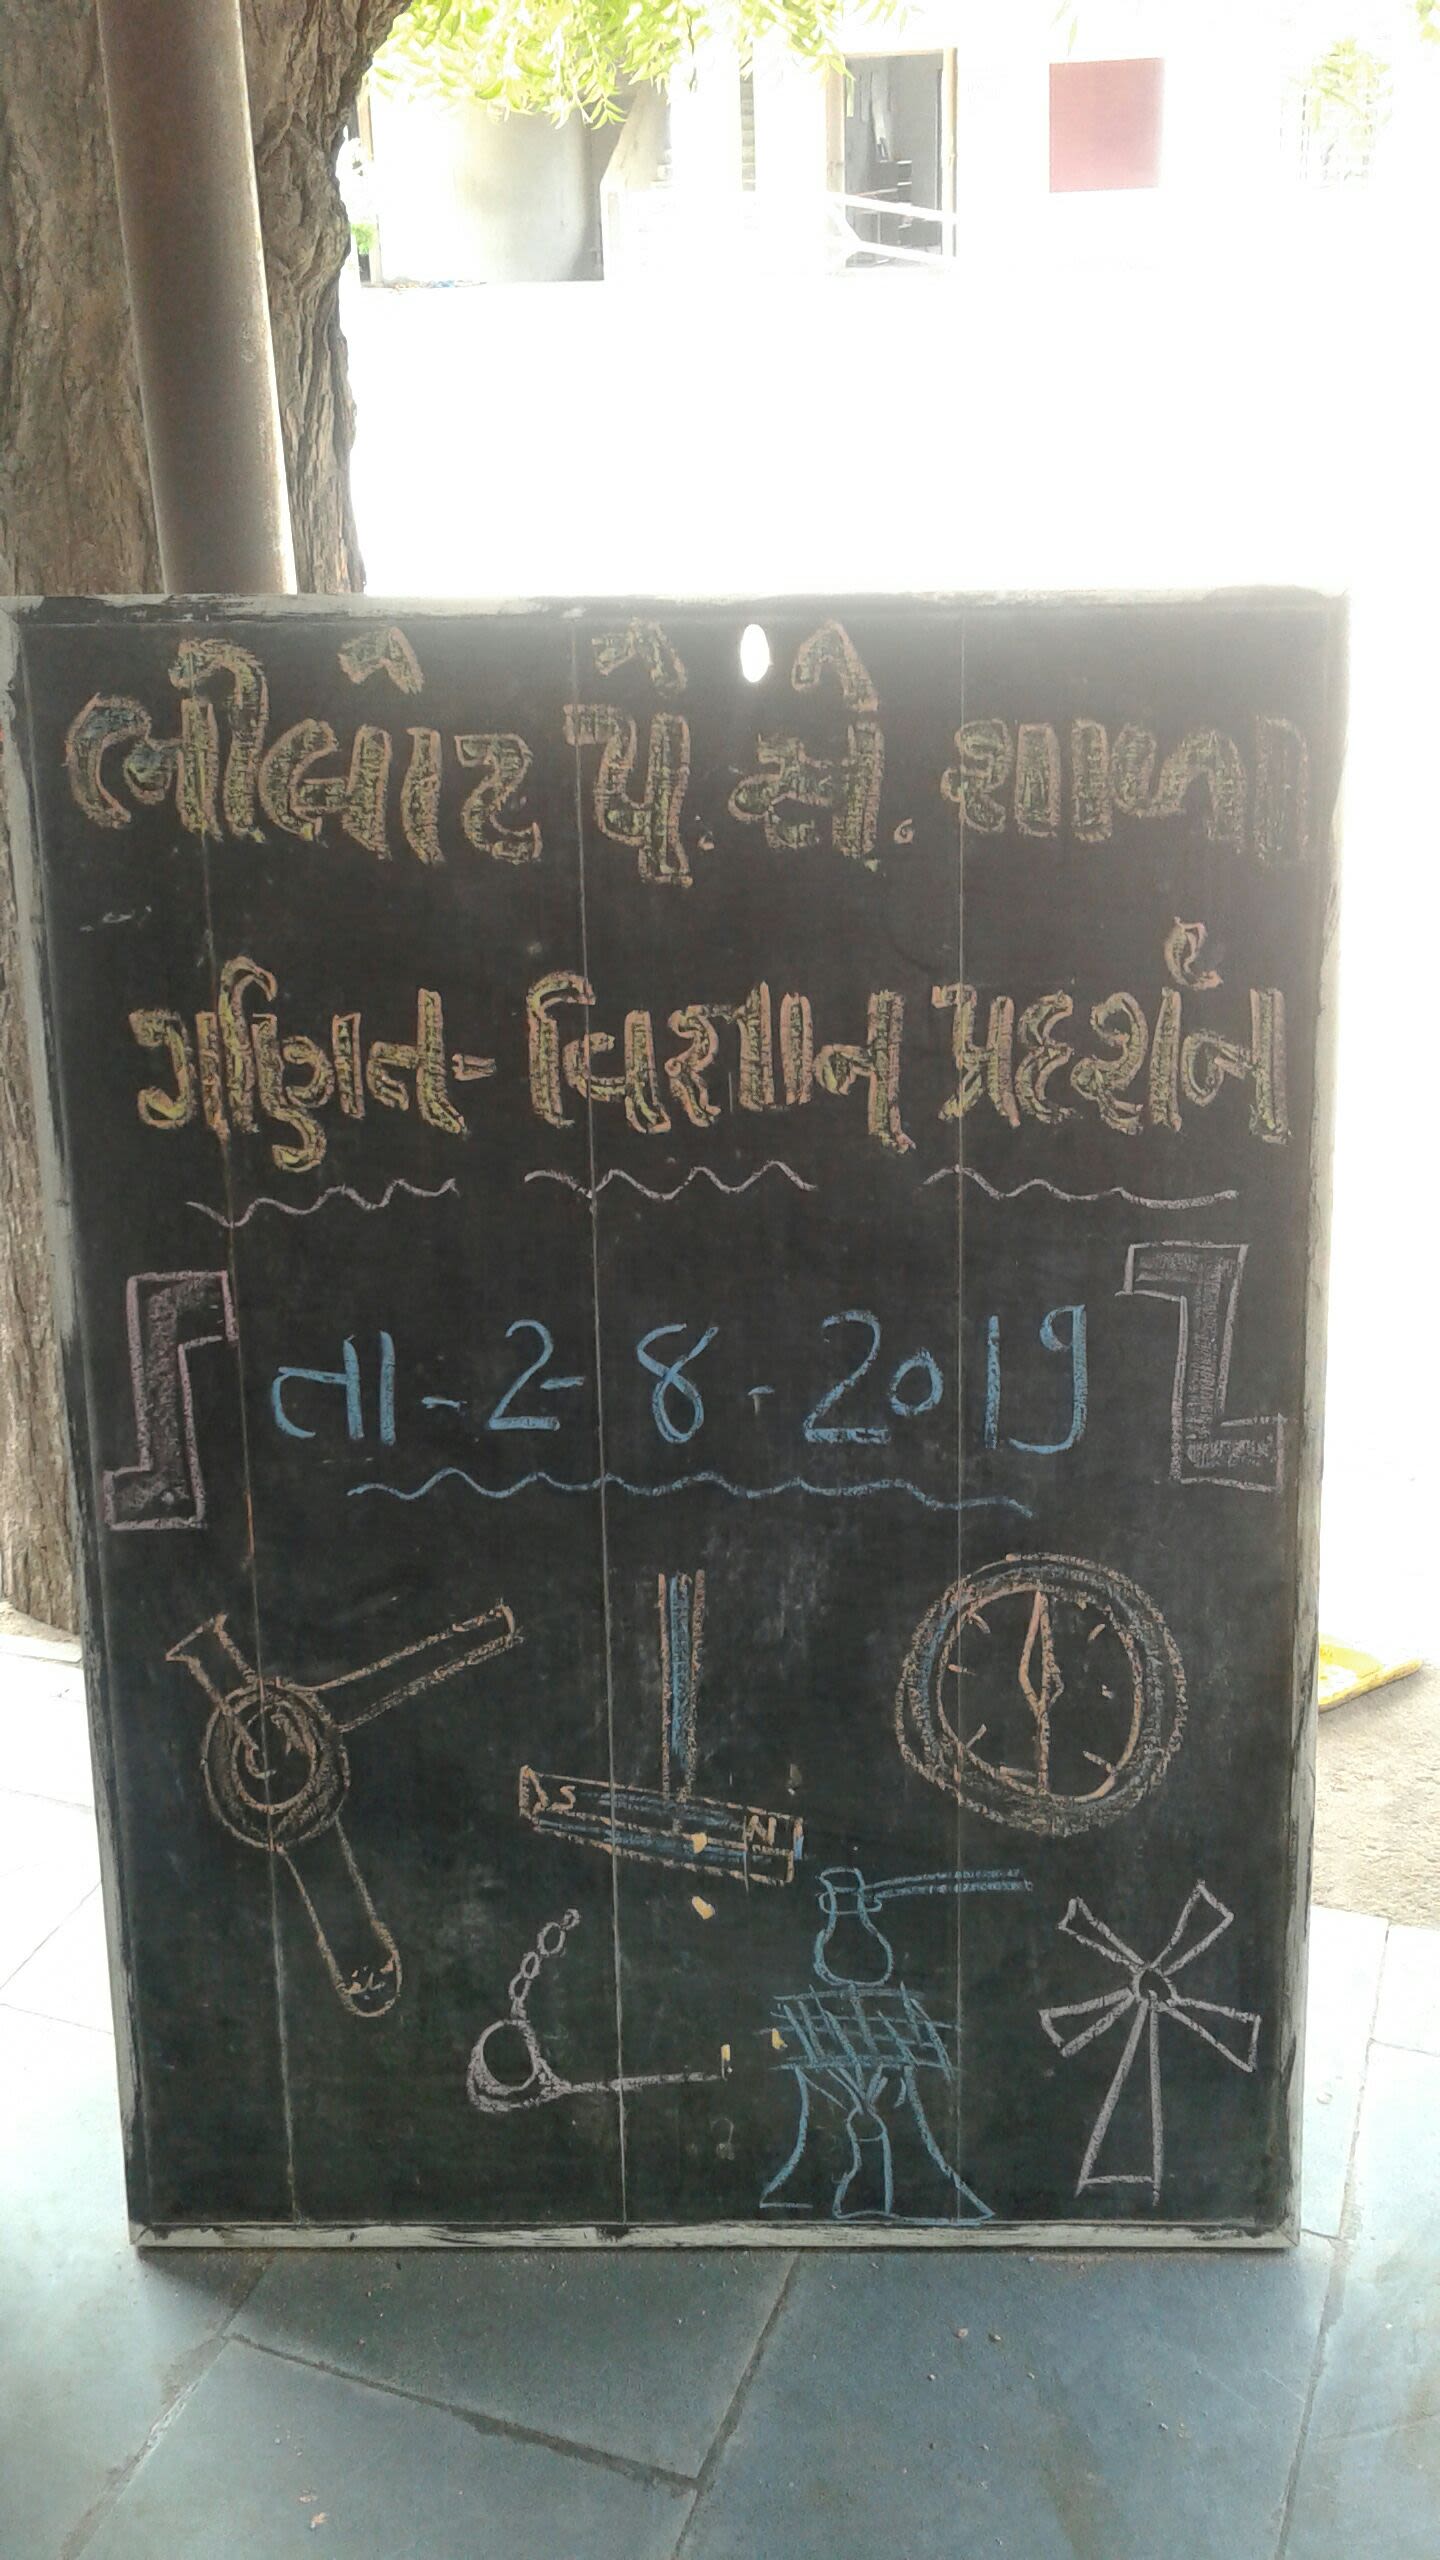 ભીલોટ પે. સે. શાળા
ગણિત - વિજ્ઞાન પ્રદર્શન
તા - 2-8-2019
S N